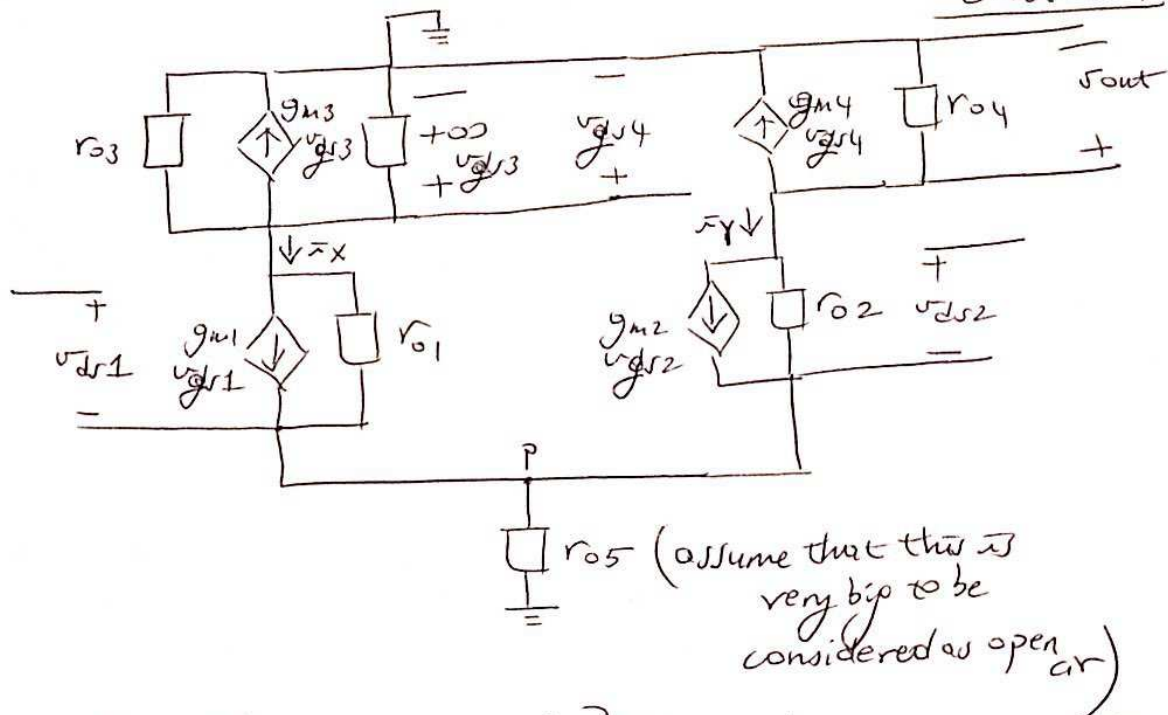 gm3
vgs3
ro3
+∞
vgs3
vgs4
gm4
vgs4
ro4
vout
ix
iy
vds1
gm1
vgs1
ro1
gm2
vgs2
ro2
vds2
P
ro5 (assume that this is
very big to be
considered as open